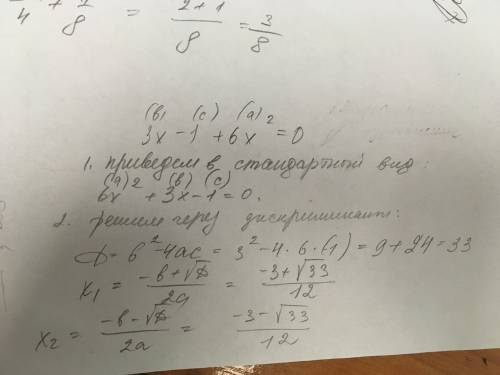 4 + 1/8 = (2+1)/8 = 3/8
(в) (с) (а)
3x - 1 + 6x² = 0
1. приведем в стандартный вид:
(а) (в) (с)
6x² + 3x - 1 = 0.
2. решим через дискриминант:
D = в² - 4ac = 3² - 4 · 6 · (1) = 9 + 24 = 33
x₁ = (-в + √D)/2a = (-3 + √33)/12
x₂ = (-в - √D)/2a = (-3 - √33)/12